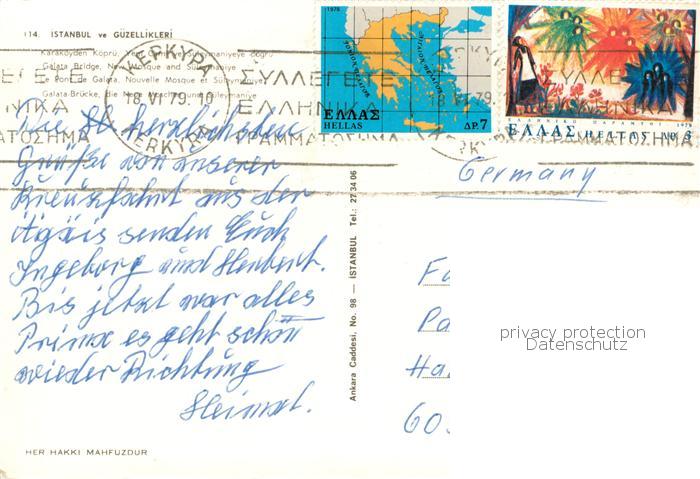 114. İSTANBUL ve GÜZELLİKLERİ
Karaköyden Köprü, Yeni Cami ve Süleymaniyeye doğru
Galata Bridge, New Mosque and Süleymaniye
Le Pont de Galata, Nouvelle Mosque et Süleymaniye
Galata-Brücke, die Neue Moschee und Süleymaniye
ΚΕΡΚΥΡΑ
18.VI 79.10
ΚΕΡΚΥΡΑ
ΣΥΛΛΕΓΕΤΕ
ΕΛΛΗΝΙΚΑ
ΓΡΑΜΜΑΤΟΣΗΜΑ
1978
ΕΛΛΑΣ
HELLAS
ΔΡ.7
ΕΛΛΑΣ HELLAS
1979
Die herzlichsten
Grüße von unserer
Kreuzfahrt aus der
Ägäis senden Euch
Ingeborg und Herbert.
Bis jetzt war alles
Prima es geht schon
wieder Richtung
Heimat.
Germany
Fa
Pa
Ha
60.
privacy protection
Datenschutz
Ankara Caddesi, No. 98 — İSTANBUL Tel.: 27 34 06
HER HAKKI MAHFUZDUR